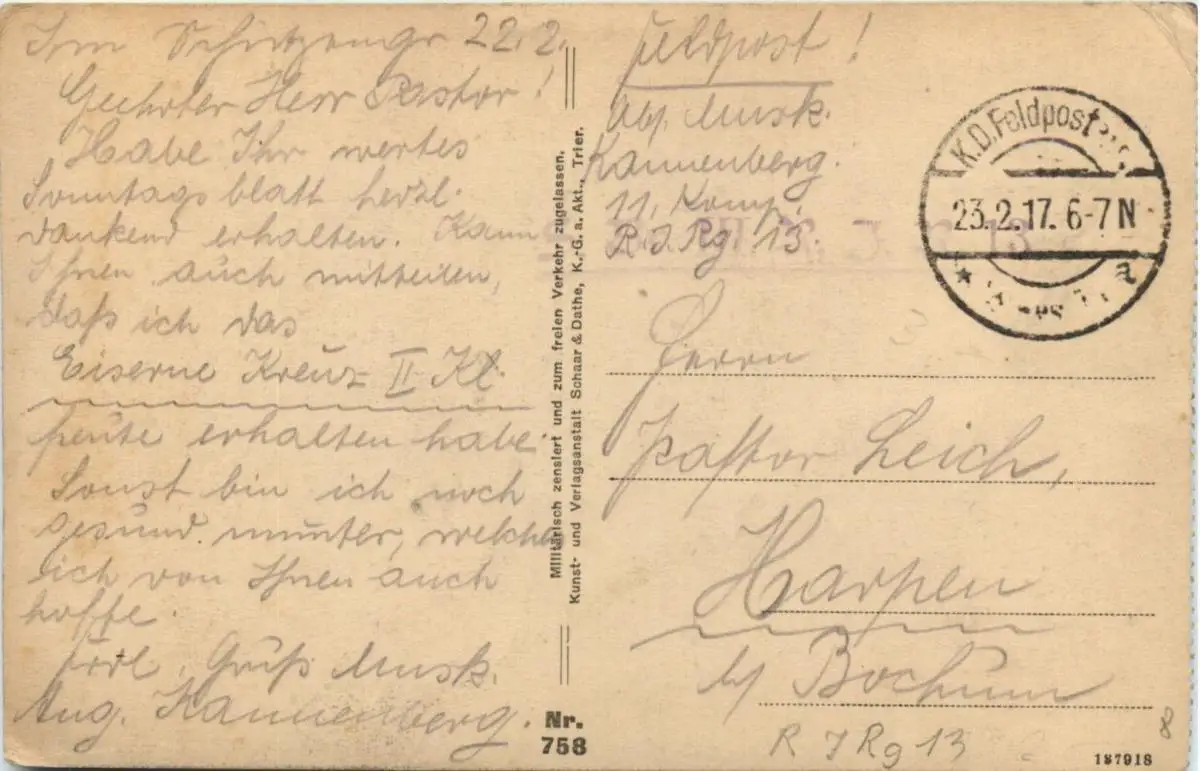 Im Schützengr 22.2.
Geehrter Herr Pastor!
Habe Ihr wertes
Sonntagsblatt herzl.
dankend erhalten. Kann
Ihnen auch mitteilen,
daß ich das
Eiserne Kreuz II Kl.
heute erhalten habe.
Sonst bin ich noch
gesund. munter, welches
ich von Ihnen auch
hoffe.
Frdl. Gruß Musk.
Aug. Kannenberg.
Militärisch zensiert und zum freien Verkehr zugelassen.
Kunst- und Verlagsanstalt Schaar & Dathe, K.-G. a. Akt., Trier.
Nr.
758
Feldpost!
Abs. Musk.
Kannenberg.
11. Komp.
R.I.Rg. 13.
K.D. Feldpost
23.2.17. 6-7 N
Herrn
Pastor Leich,
Harpen
b/ Bochum
R I Rg 13
8
187918